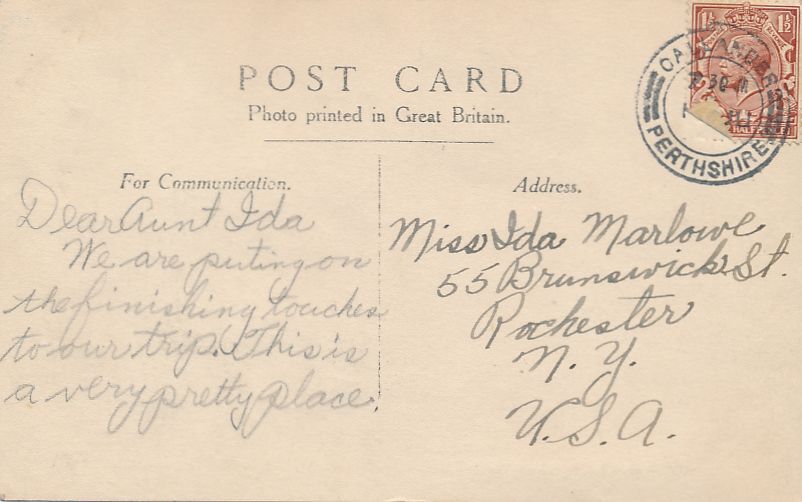 POST CARD
Photo printed in Great Britain.
For Communication.
Address.
Dear Aunt Ida
We are puting on
the finishing touches
to our trip. This is
a very pretty place
Miss Ida Marlowe
55 Brunswick St.
Rochester
N. Y.
U.S.A.
1½ 1½
HALFPENCE
CALLANDER
30
PERTHSHIRE